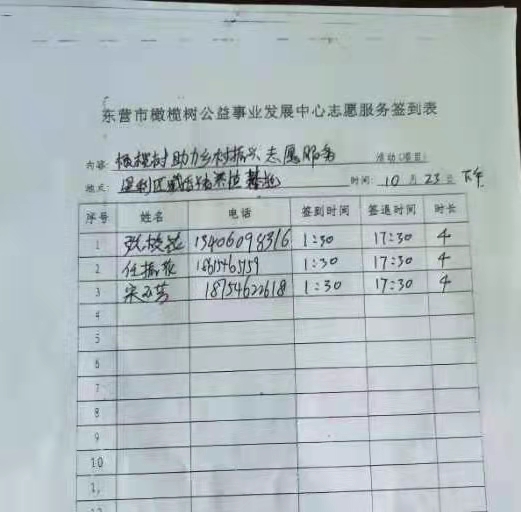 东营市橄榄树公益事业发展中心志愿服务签到表
内容: 橄榄树助力乡村振兴志愿服务 活动(项目)
地点: 垦利区 时间: 10月23日下午
序号 姓名 电话 签到时间 签退时间 时长
1 13406098316 1:30 17:30 4
2 任振 1:30 17:30 4
3 宋 18754622618 1:30 17:30 4
4
5
6
7
8
9
10